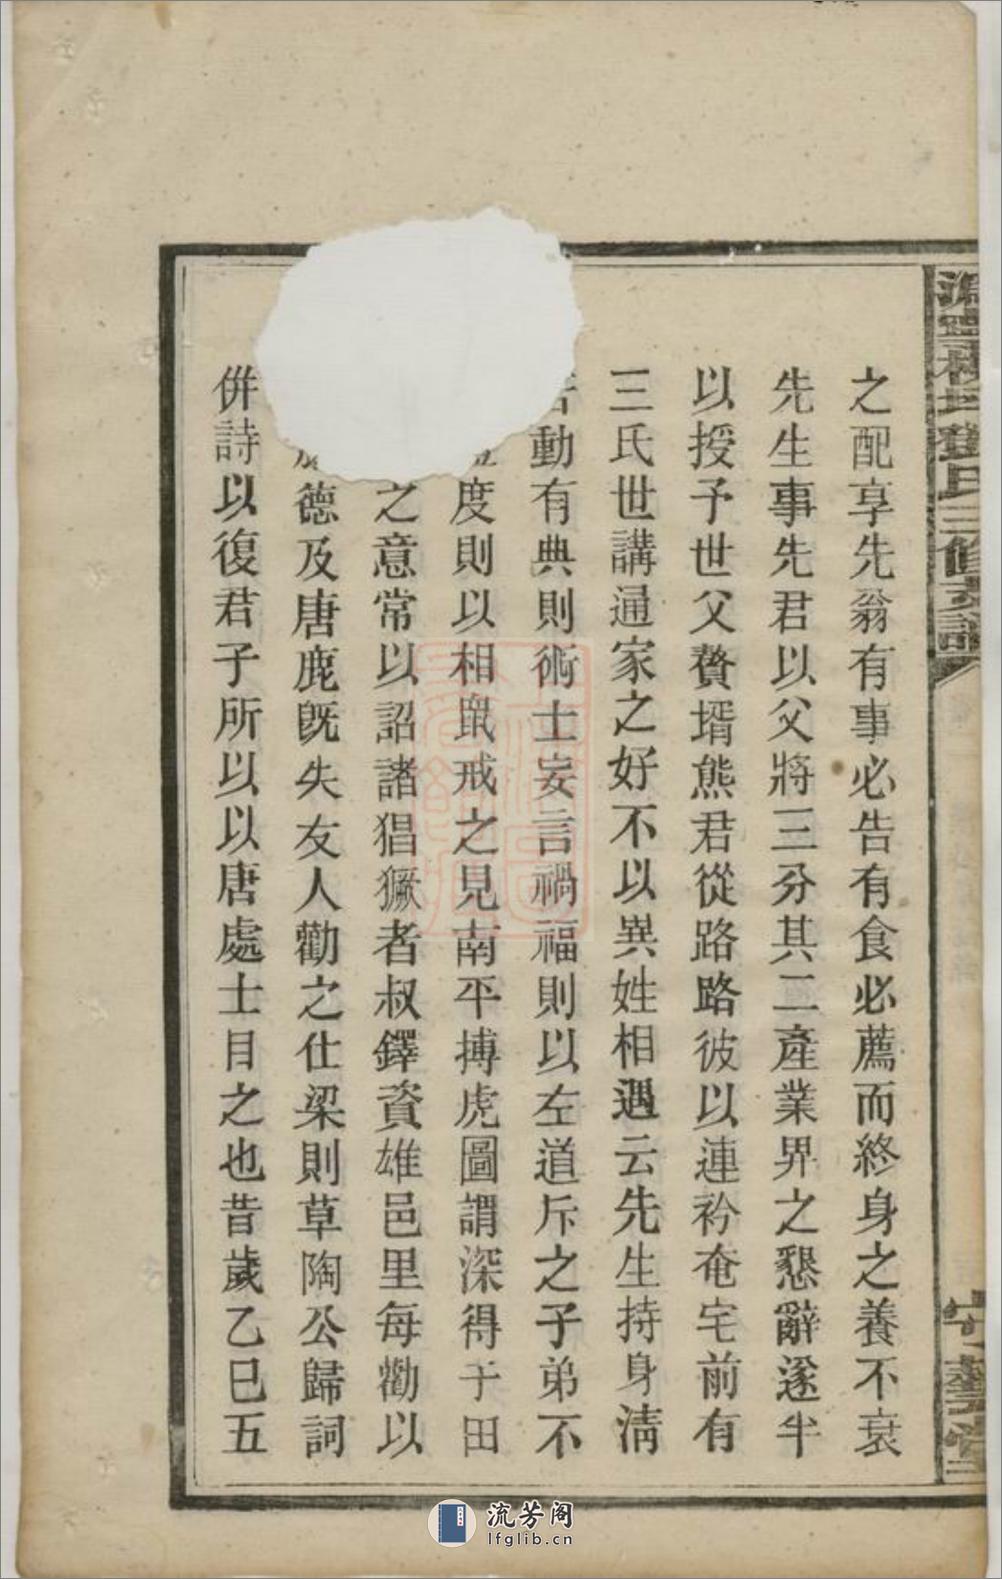 之配享先翁有事必告有食必薦而終身之養不衰
先生事先君以父將三分其二產業界之懇辭遂半
以授予世父贅壻熊君從路路彼以連衿奄宅前有
三氏世講通家之好不以異姓相遇云先生持身清
苦動有典則術士妄言禍福則以左道斥之子弟不
度則以相鼠戒之見南平搏虎圖謂深得于田
之意常以詔諸猖獗者叔鐸資雄邑里每勸以
德及唐鹿既失友人勸之仕梁則草陶公歸詞
倂詩以復君子所以以唐處士目之也昔歲乙巳五
流芳阁
lfglib.cn